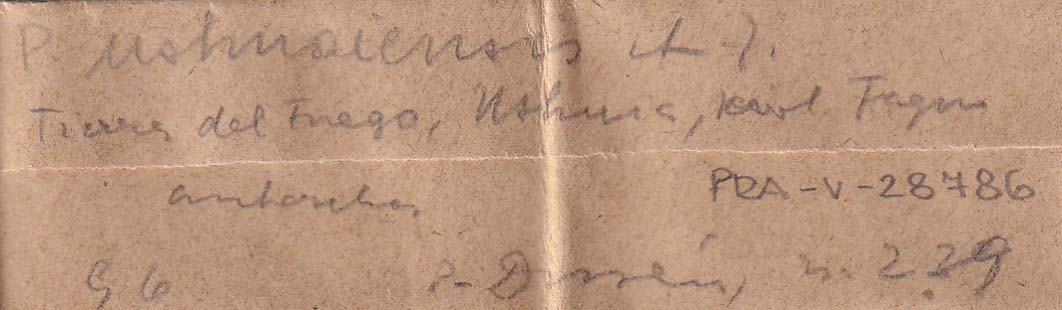 P. ushuaiensis
Tierra del Fuego, Ushuia, Fagus
antarctica
PRA-V-28786
96 P. Dusén, n. 239